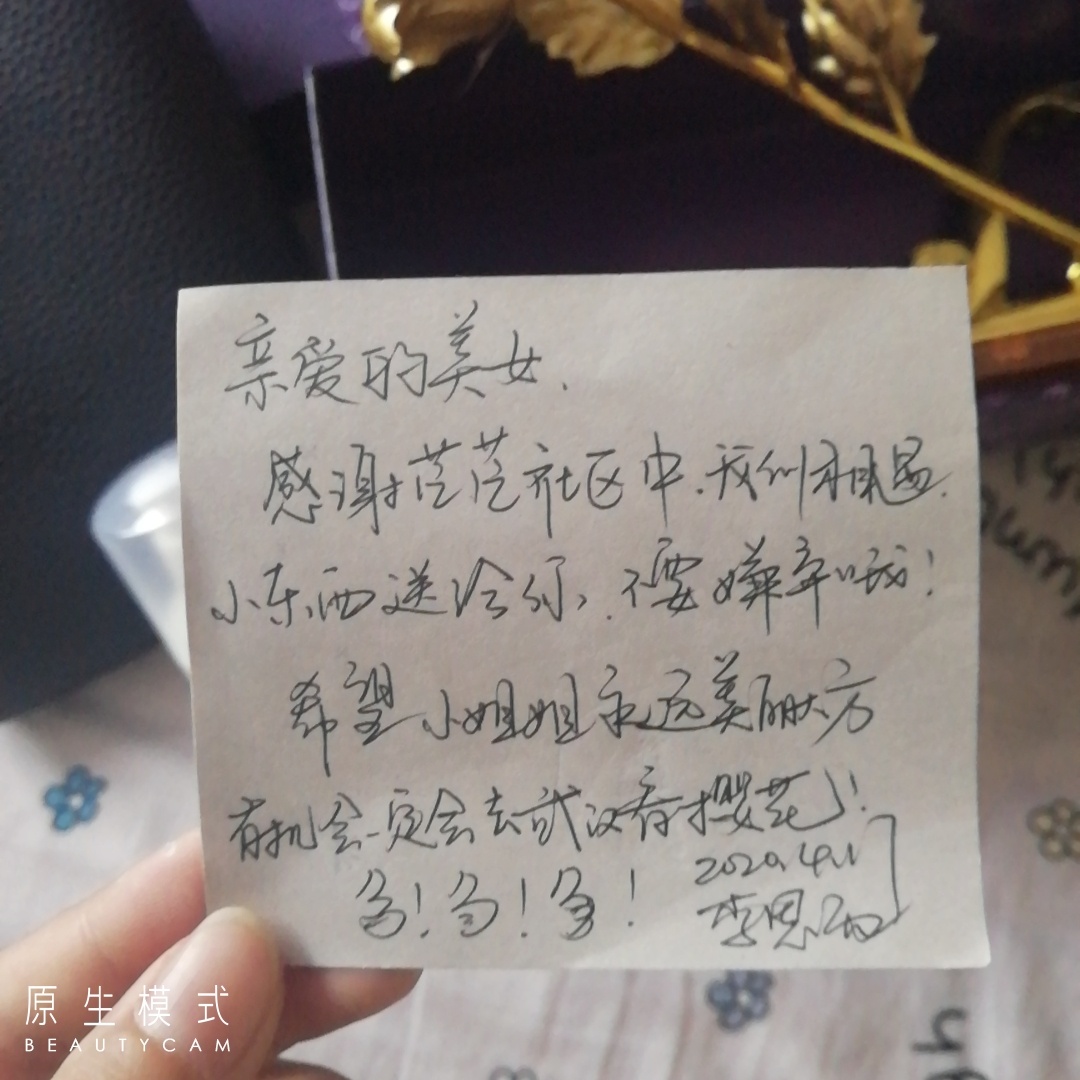 亲爱的美女.
感谢茫茫社区中.我们相遇.
小东西送给你,不要嫌弃哦!
希望小姐姐永远美丽大方
有机会一定会去武汉看樱花!!
多!多!多!
2020.4.1
李思
原生模式
BEAUTYCAM